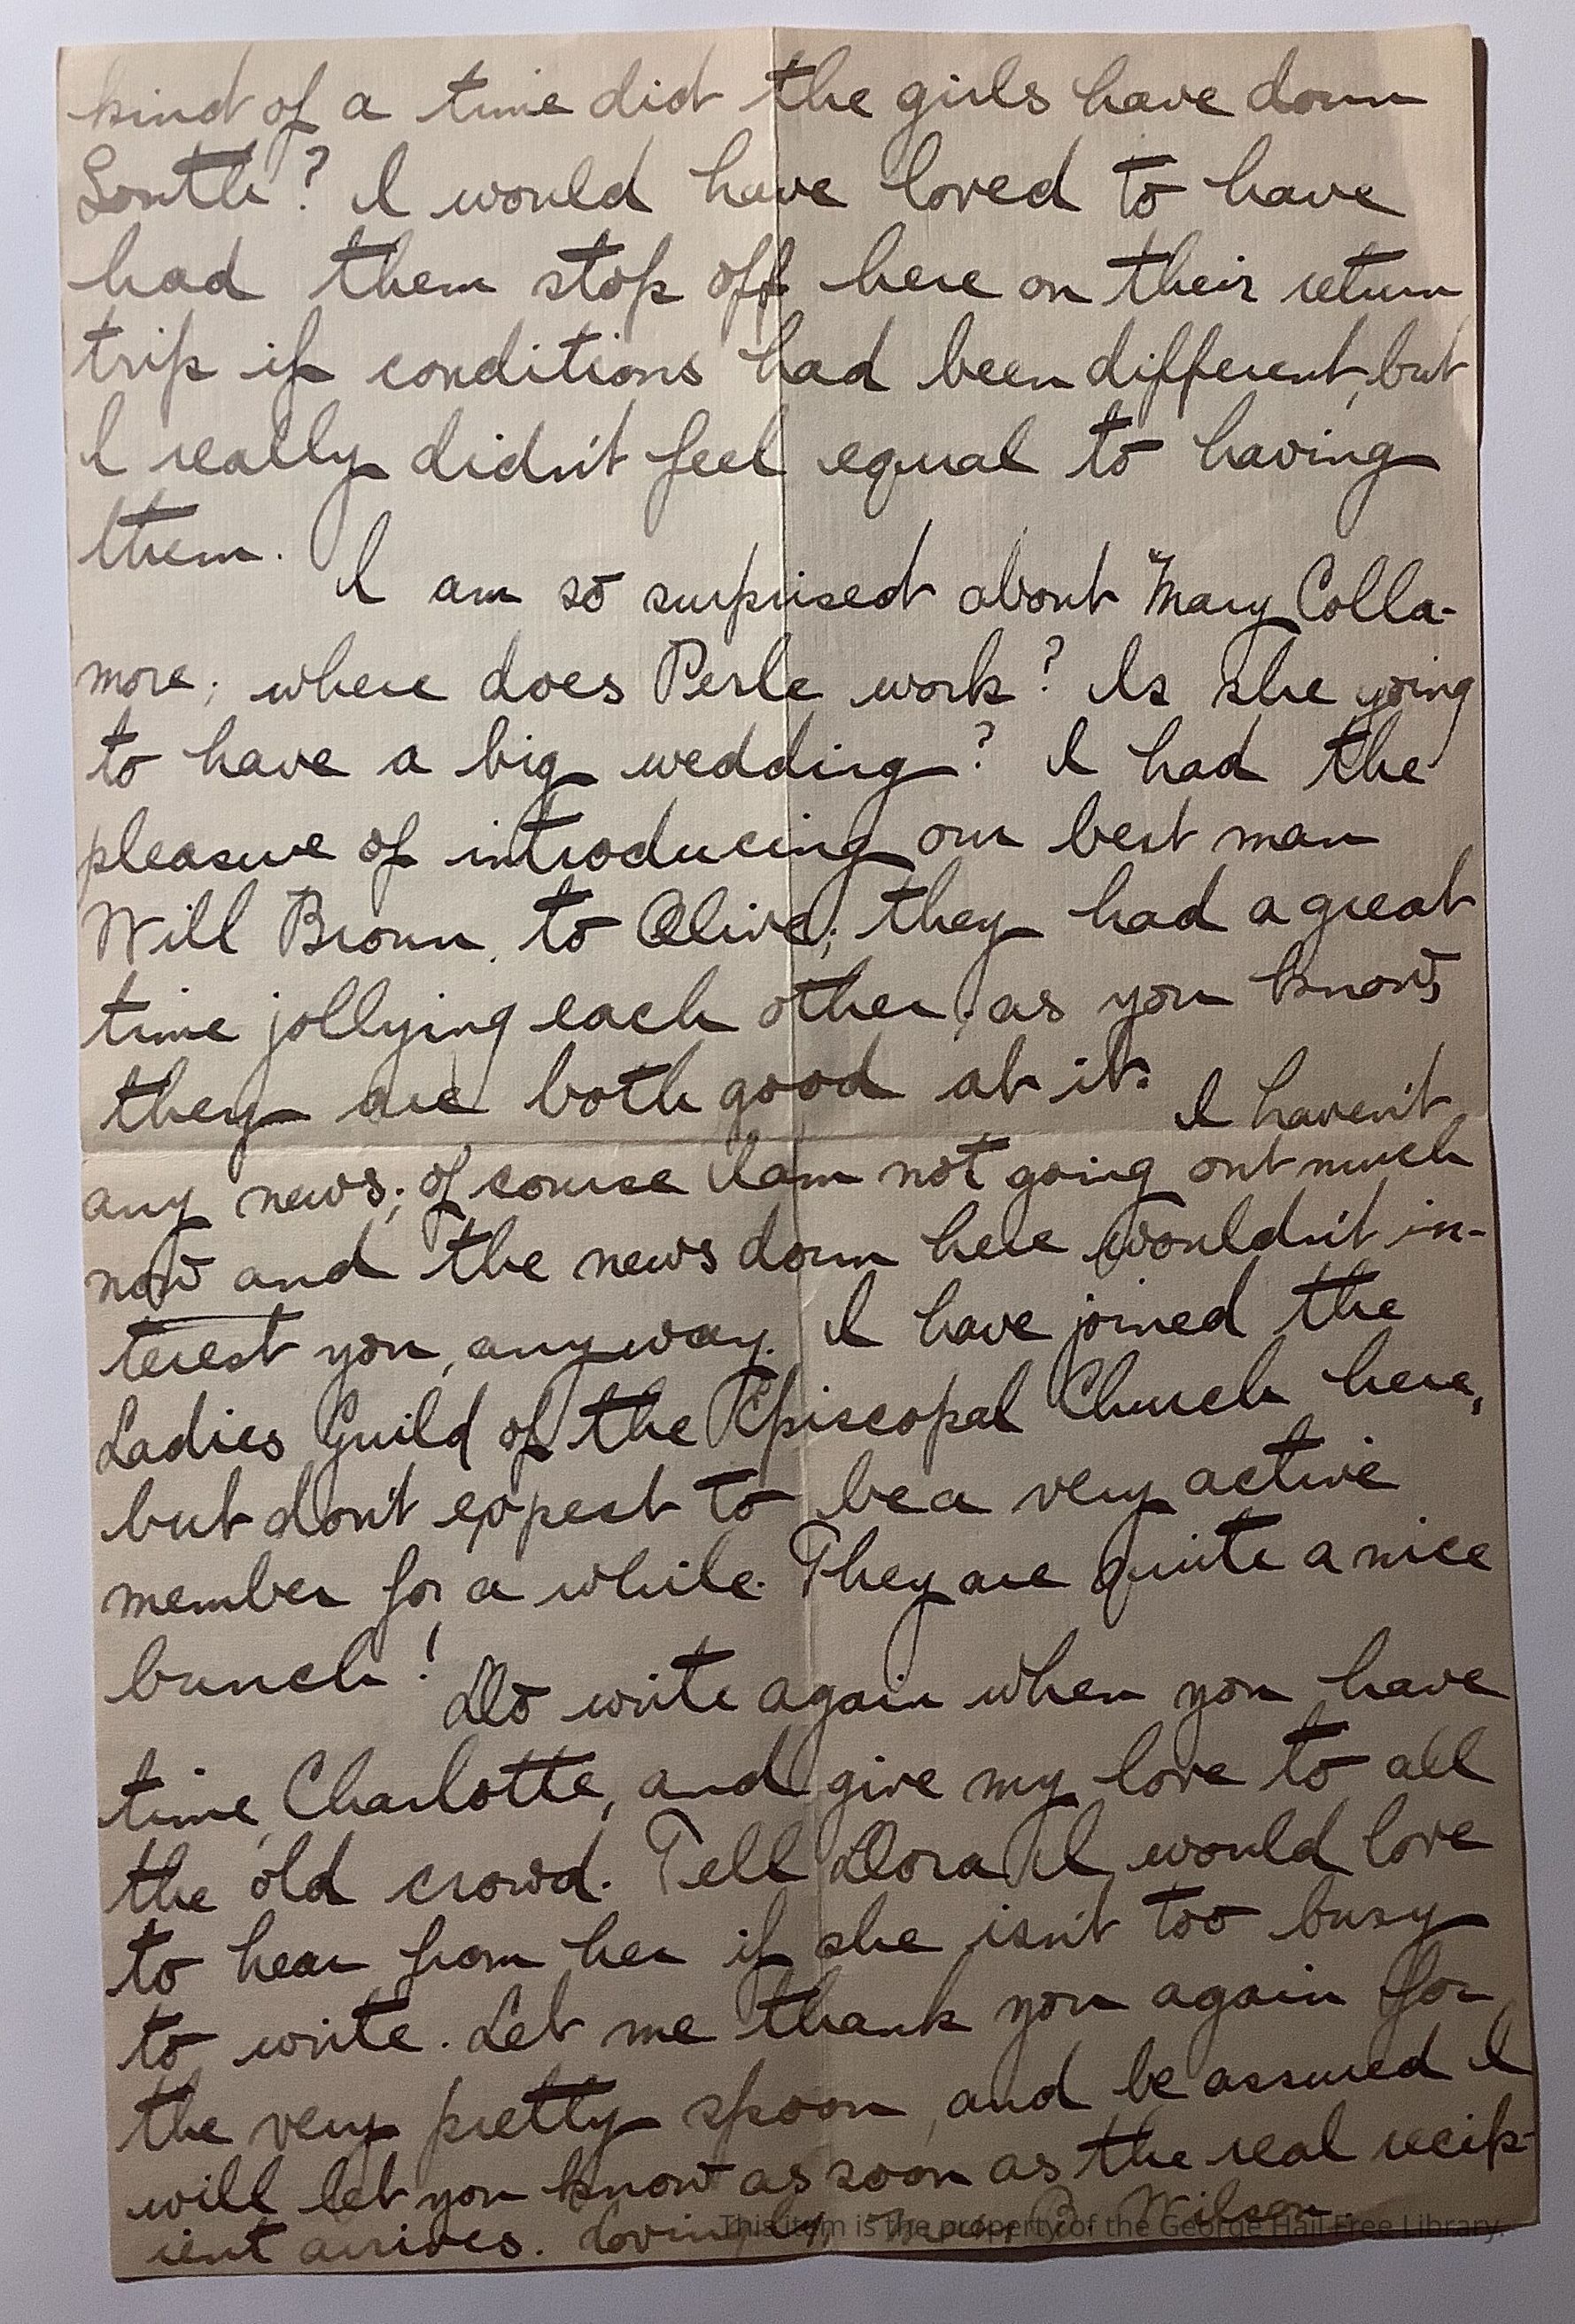 kind of a time did the girls have down
South? I would have loved to have
had them stop off here on their return
trip if conditions had been different, but
I really didn't feel equal to having
them.
I am so surprised about Mary Colla-
more; where does Perle work? Is she going
to have a big wedding? I had the
pleasure of introducing our best man
Will Brown, to Olive; they had a great
time jollying each other, as you know,
they are both good at it. I haven't
any news; of course I am not going out much
now and the news down here wouldn't in-
terest you, anyway. I have joined the
Ladies Guild of the Episcopal Church here,
but don't expect to be a very active
member for a while. They are quite a nice
bunch!
Do write again when you have
time, Charlotte, and give my love to all
the old crowd. Tell Dora I would love
to hear from her if she isn't too busy
to write. Let me thank you again for
the very pretty spoon, and be assured I
will let you know as soon as the real recip-
ient arrives. Lovingly, B. Wilson.
This item is the property of the George Hail Free Library.